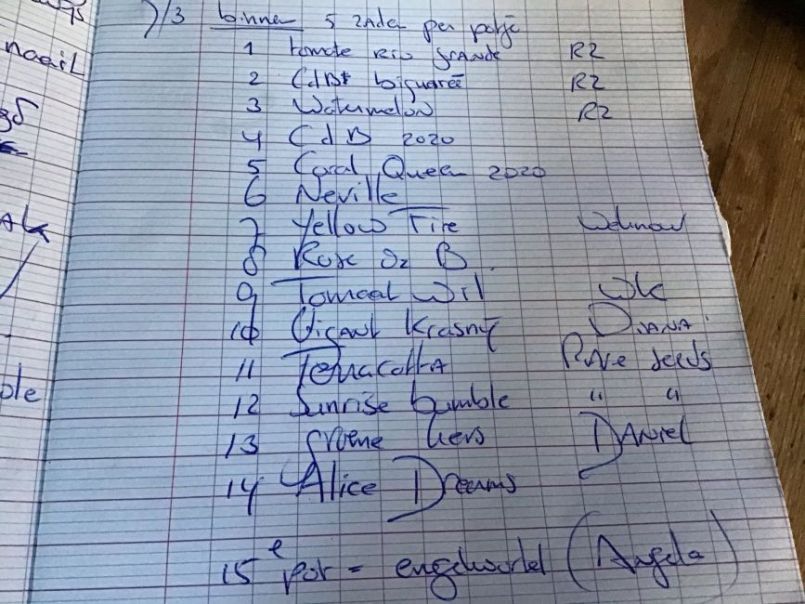 7/3 binnen 5 zaden per potje
1 tomate Rio Grande R2
2 CdB bigarée R2
3 Watermelon R2
4 CdB 2020
5 Coral Queen 2020
6 Neville
7 Yellow Fire
8 Rose de B
9 Tomeat Wil
10 Gigant Krasny DIANA
11 Terracotta Rare seeds
12 Sunrise bumble " "
13 groene kers DANIEL
14 Alice Dreams
15e pot = engelwortel (Angela)
ple